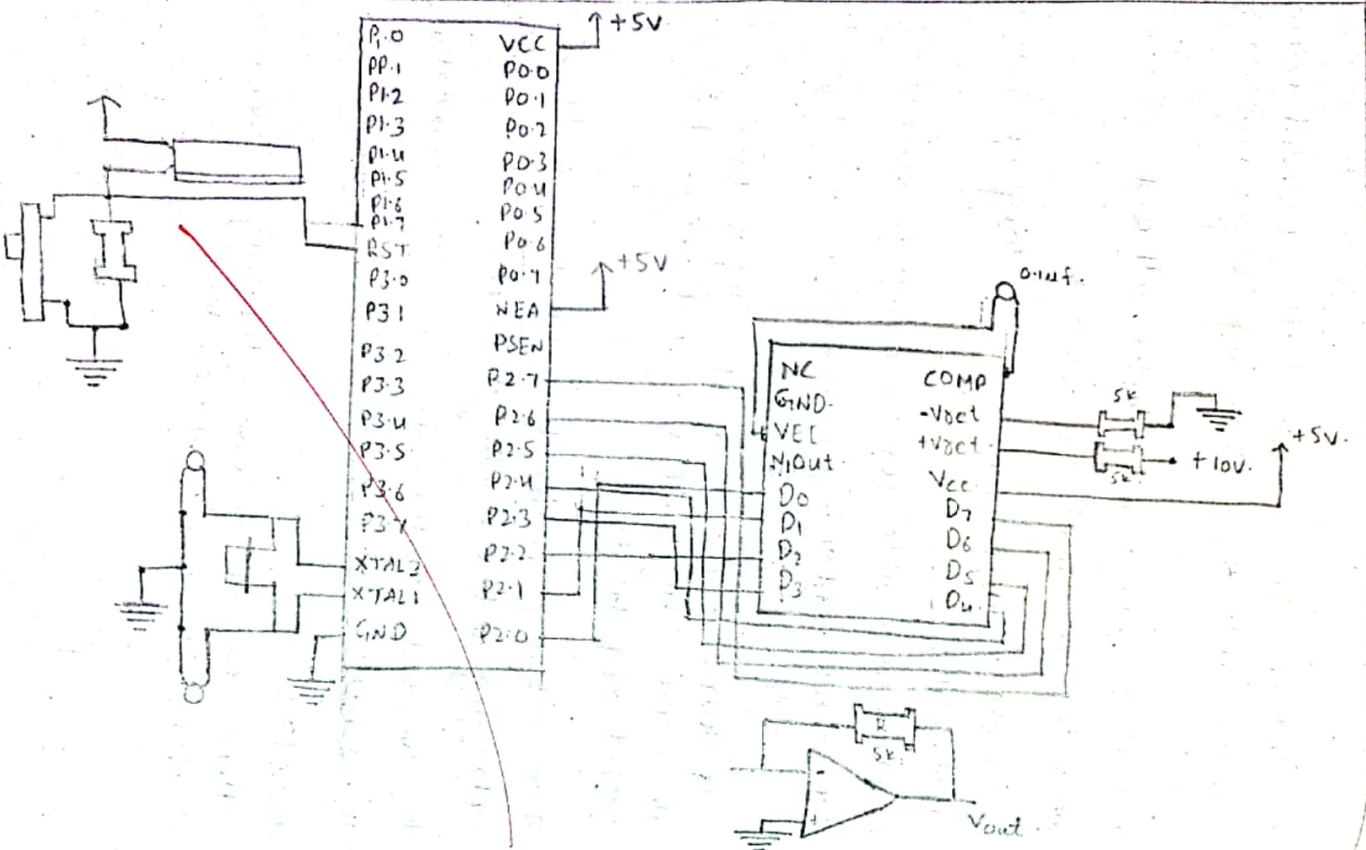 P1.0
PP.1
P1.2
P1.3
P1.4
P1.5
P1.6
P1.7
RST
P3.0
P3.1
P3.2
P3.3
P3.4
P3.5
P3.6
P3.7
XTAL2
XTAL1
GND
+5V.
VCC
P0.0
P0.1
P0.2
P0.3
P0.4
P0.5
P0.6
P0.7
+5V
NEA
PSEN
P2.7
P2.6
P2.5
P2.4
P2.3
P2.2
P2.1
P2.0
NC
GND.
VEE
D0
D1
D2
D3
COMP
VCC
D7
D6
D5
D4
5K
+10V.
5K
+5V.
R
5K.
-
+
Vout.